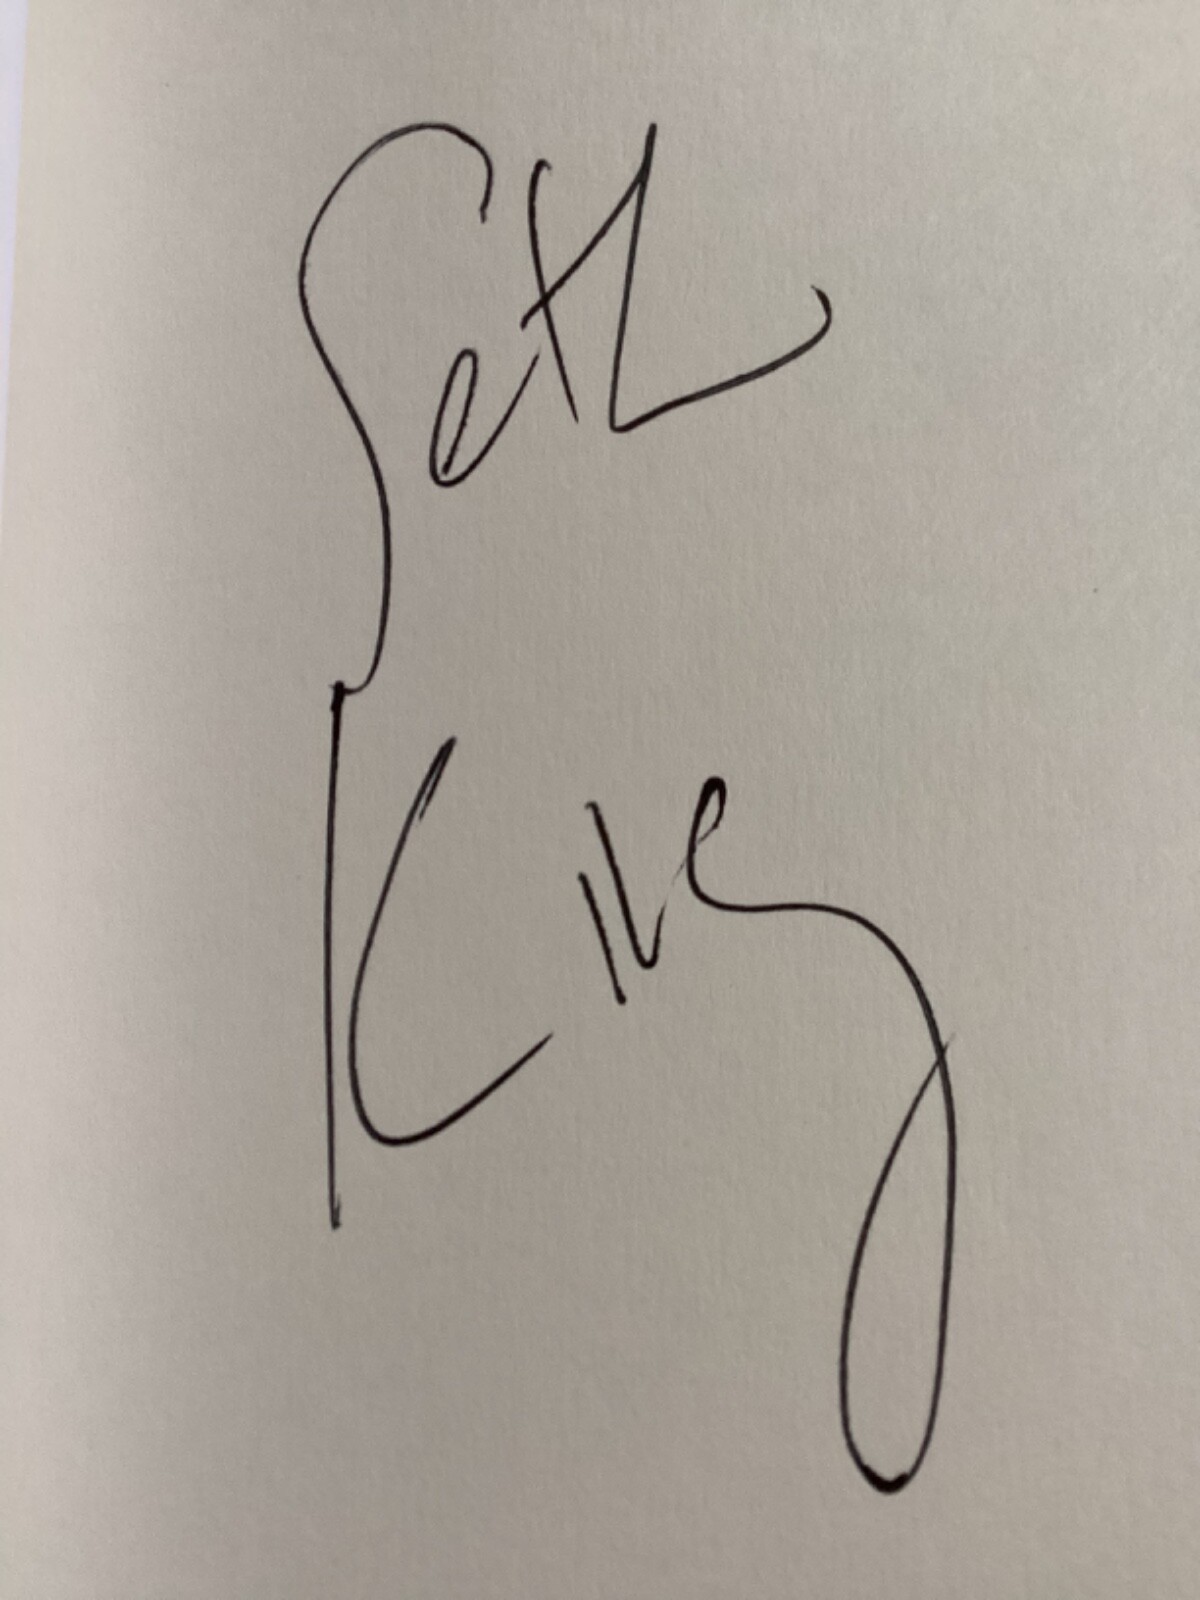 Seth
King